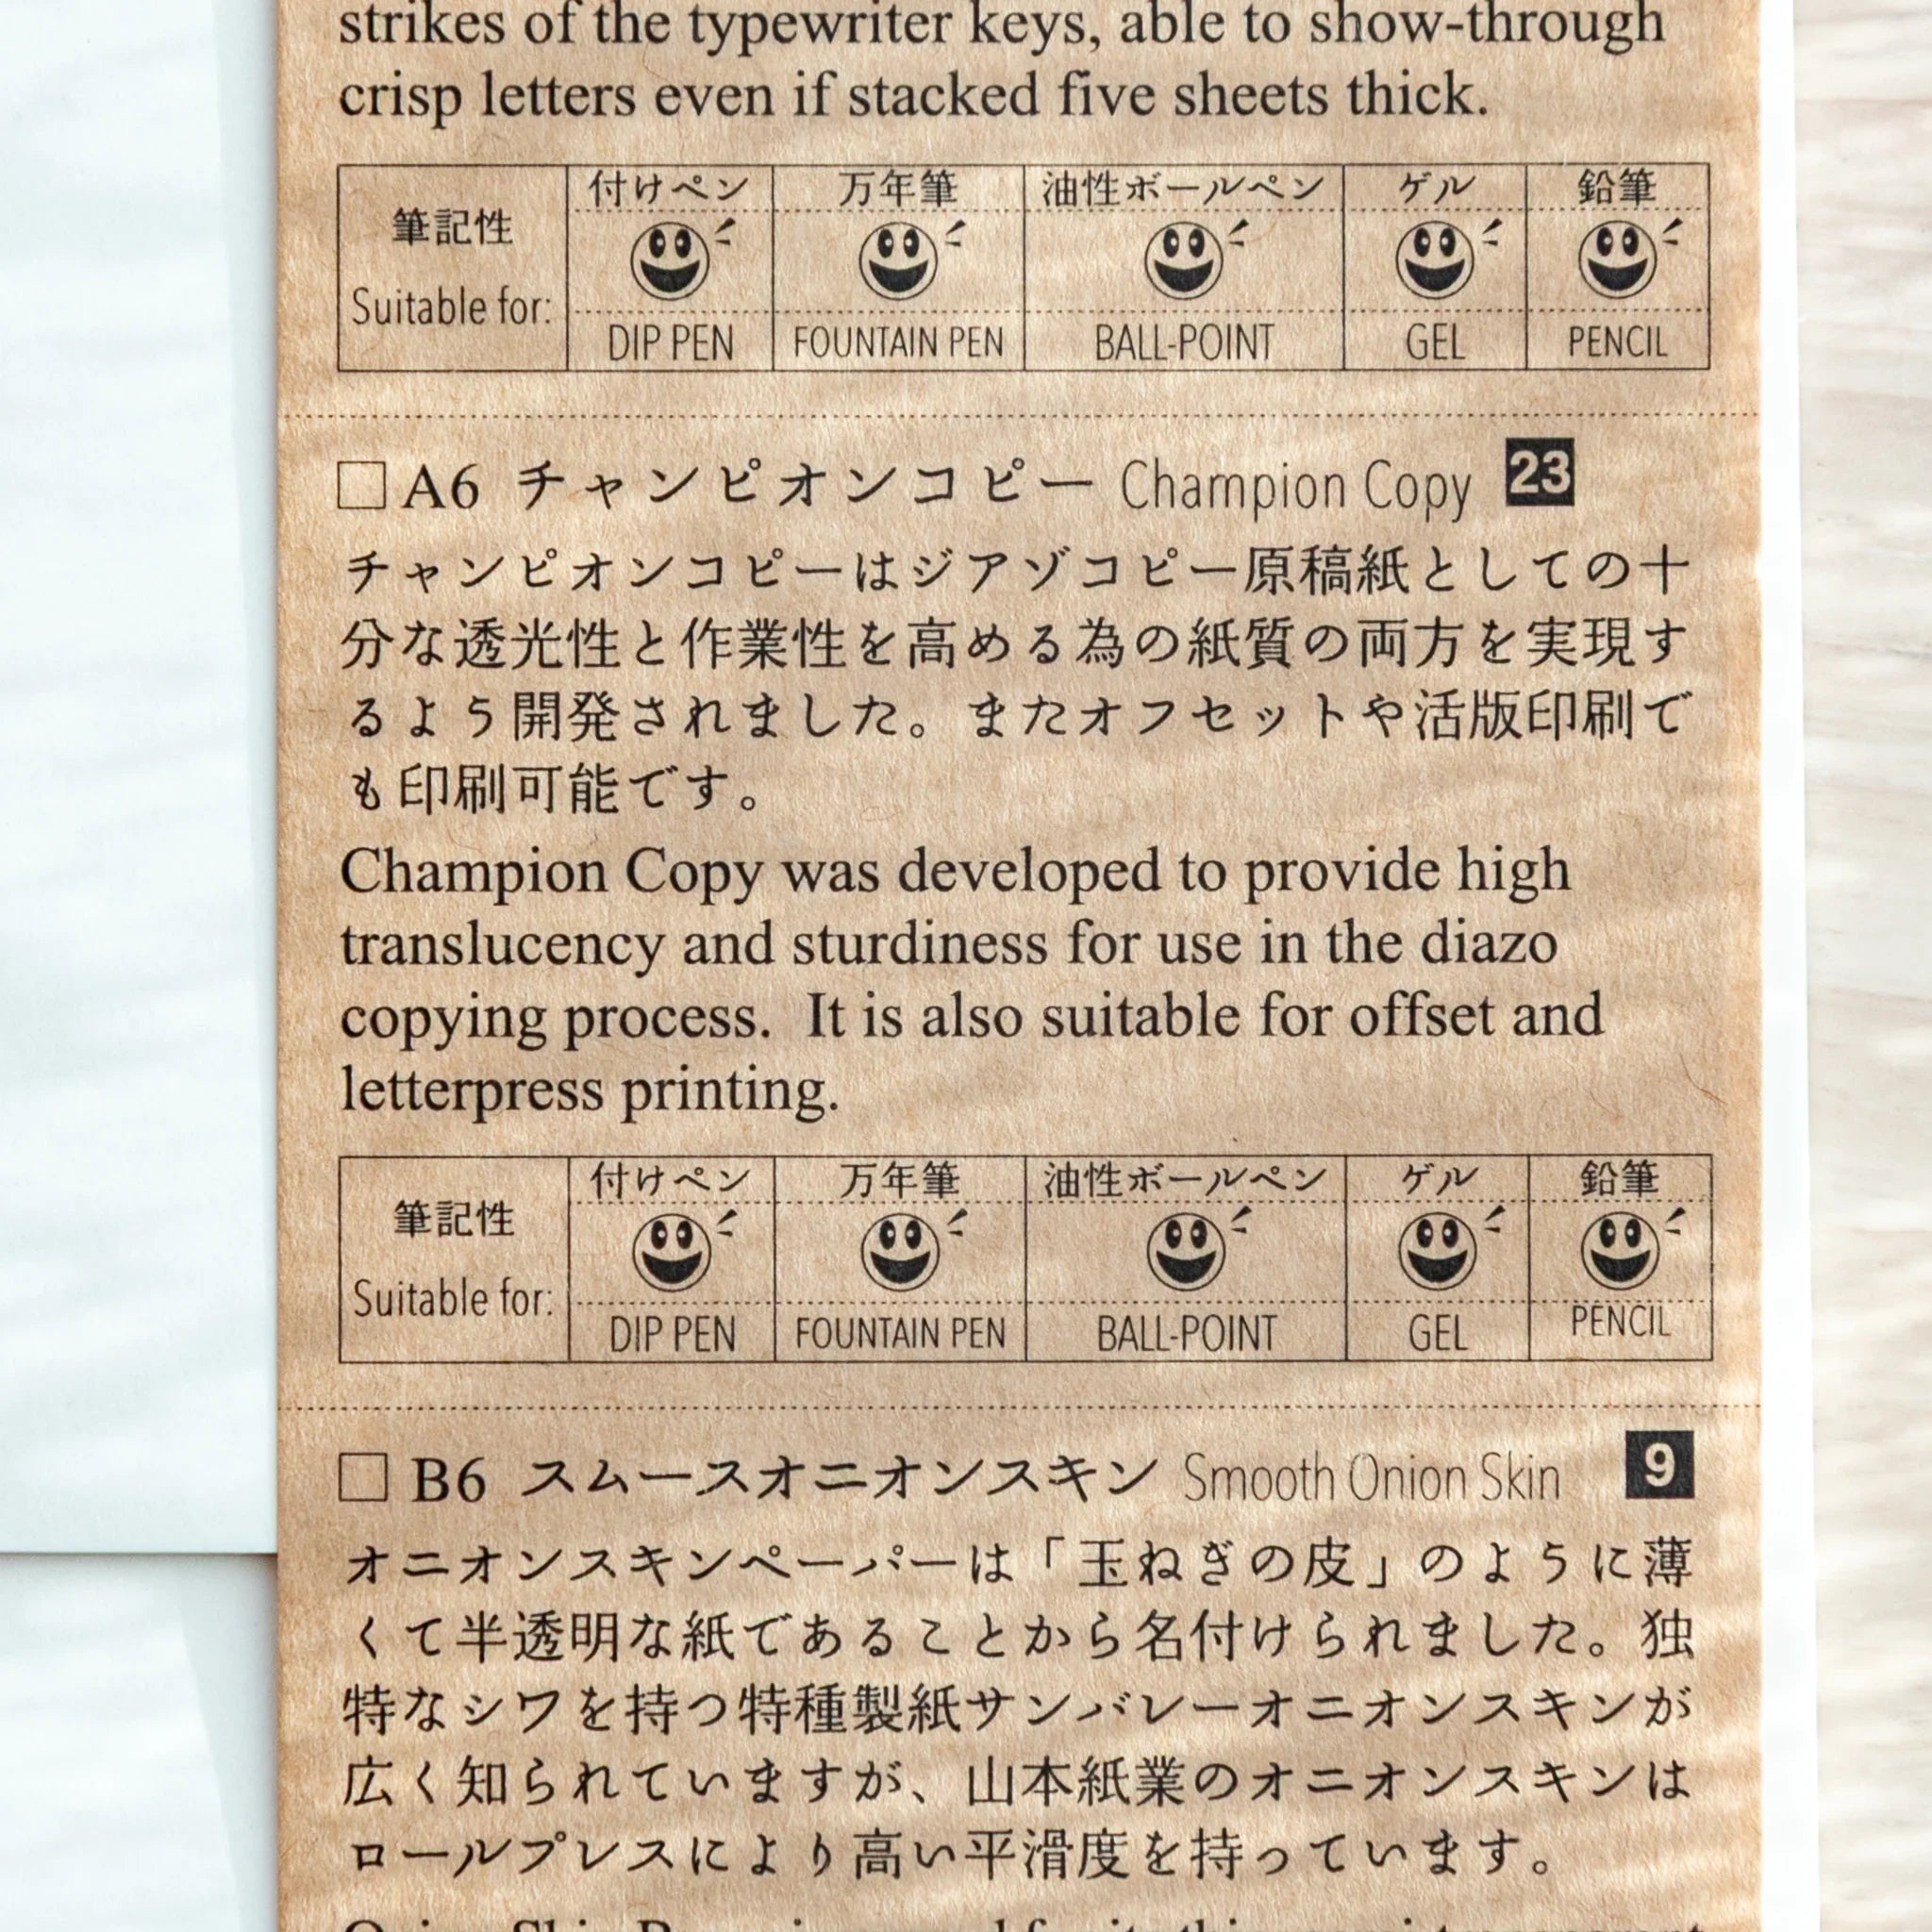 strikes of the typewriter keys, able to show-through
crisp letters even if stacked five sheets thick.
筆記性 付けペン 万年筆 油性ボールペン ゲル 鉛筆
Suitable for: DIP PEN FOUNTAIN PEN BALL-POINT GEL PENCIL
□ A6 チャンピオンコピー Champion Copy 23
チャンピオンコピーはジアゾコピー原稿紙としての十
分な透光性と作業性を高める為の紙質の両方を実現す
るよう開発されました。またオフセットや活版印刷で
も印刷可能です。
Champion Copy was developed to provide high
translucency and sturdiness for use in the diazo
copying process. It is also suitable for offset and
letterpress printing.
筆記性 付けペン 万年筆 油性ボールペン ゲル 鉛筆
Suitable for: DIP PEN FOUNTAIN PEN BALL-POINT GEL PENCIL
□ B6 スムースオニオンスキン Smooth Onion Skin 9
オニオンスキンペーパーは「玉ねぎの皮」のように薄
くて半透明な紙であることから名付けられました。独
特なシワを持つ特種製紙サンバレーオニオンスキンが
広く知られていますが、山本紙業のオニオンスキンは
ロールプレスにより高い平滑度を持っています。